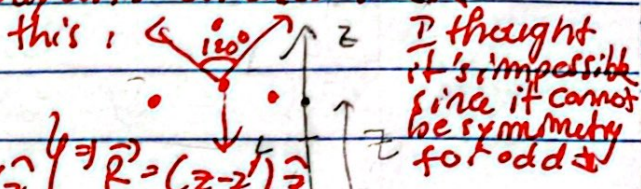 this,
120°
z
I thought
it's impossible
since it cannot
be symmetry
for odd
z
⇒ R⃗ = (z-z')